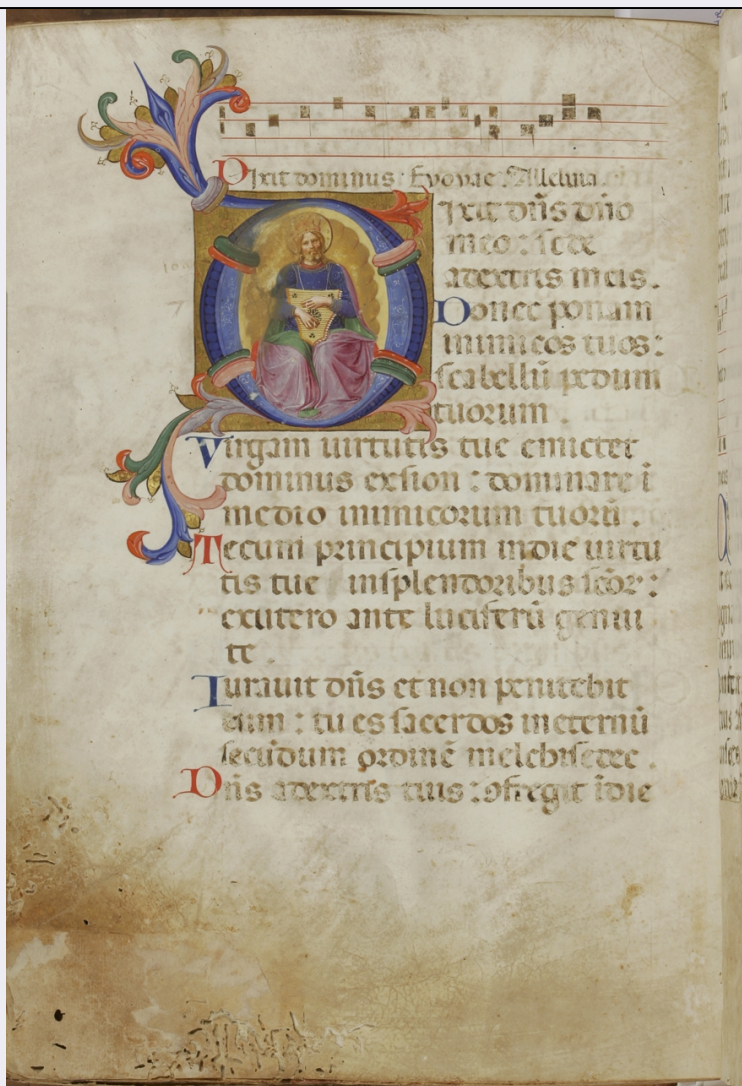 Dixit dominus. Evovae. Alleluia.
Dixit dñs dño
meo: sede
adextris meis.
Donec ponam
inimicos tuos:
scabellũ pedum
tuorum.
Virgam uirtutis tue emictet
dominus exsion: dominare ĩ
medio inimicorum tuorũ.
Tecum principium indie uirtu
tis tue insplendoribus scõr:
exutero ante luciferũ genui
te.
Iurauit dñs et non penitebit
eum: tu es sacerdos ineternũ
secũdum ordinẽ melchisedec.
Dñs adextris tuis: ꝯfregit ĩdie